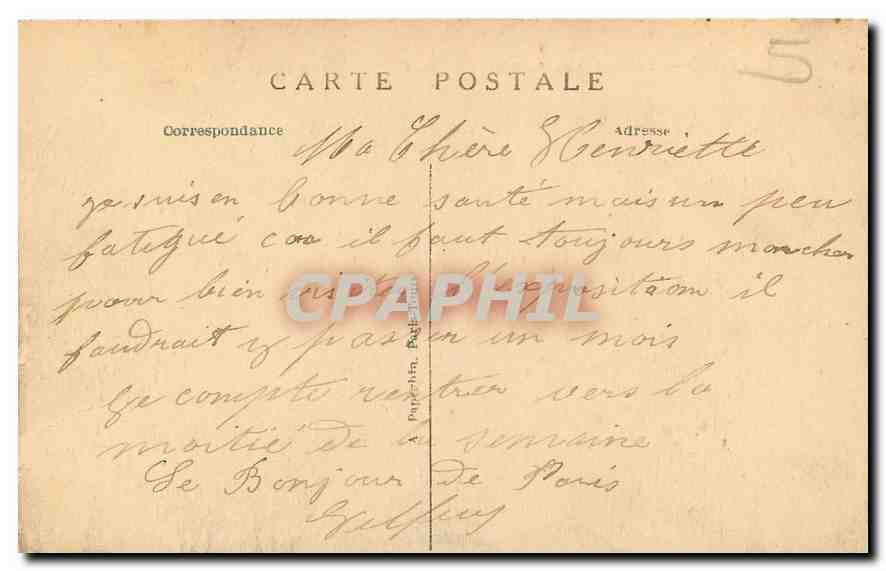 5
CARTE POSTALE
Correspondance
Adresse
Ma Chère Henriette
je suis en bonne santé mais un peu
fatigué car il faut toujours marcher
pour bien visiter l'exposition il
faudrait y passer un mois
Je compte rentrer vers la
moitié de la semaine
Le Bonjour de Paris
CPAPHIL
A. Papeghin, Paris-Tours